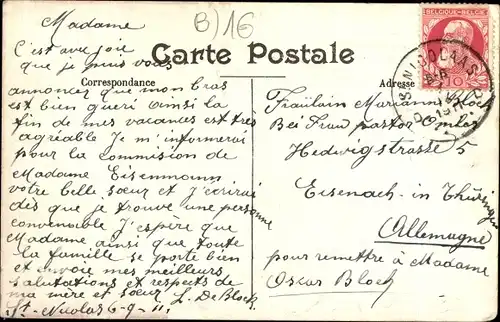 Madame
B) 16
BELGIQUE-BELGIE
10
Carte Postale
Correspondance
Adresse
C'est avec joie
que je puis vous
annoncer que mon bras
est bien guéri ainsi la
fin de mes vacances est très
agréable Je m'informerai
pour la commision de
Madame Eisenmann
votre belle sœur et J'écrirai
dès que je trouve une personne
convenable J'espère que
Madame ainsi que toute
la famille se porte bien
et envoie mes meilleurs
salutations et respects de
ma mère et sœur L. De Block
St-Nicolas 6-9-11.
Fräulein Marianne
Bei Frau pastor
Hedwigstrasse 5
Eisenach in Thüringen
Allemagne
pour remettre à Madame
Oscar Bloch